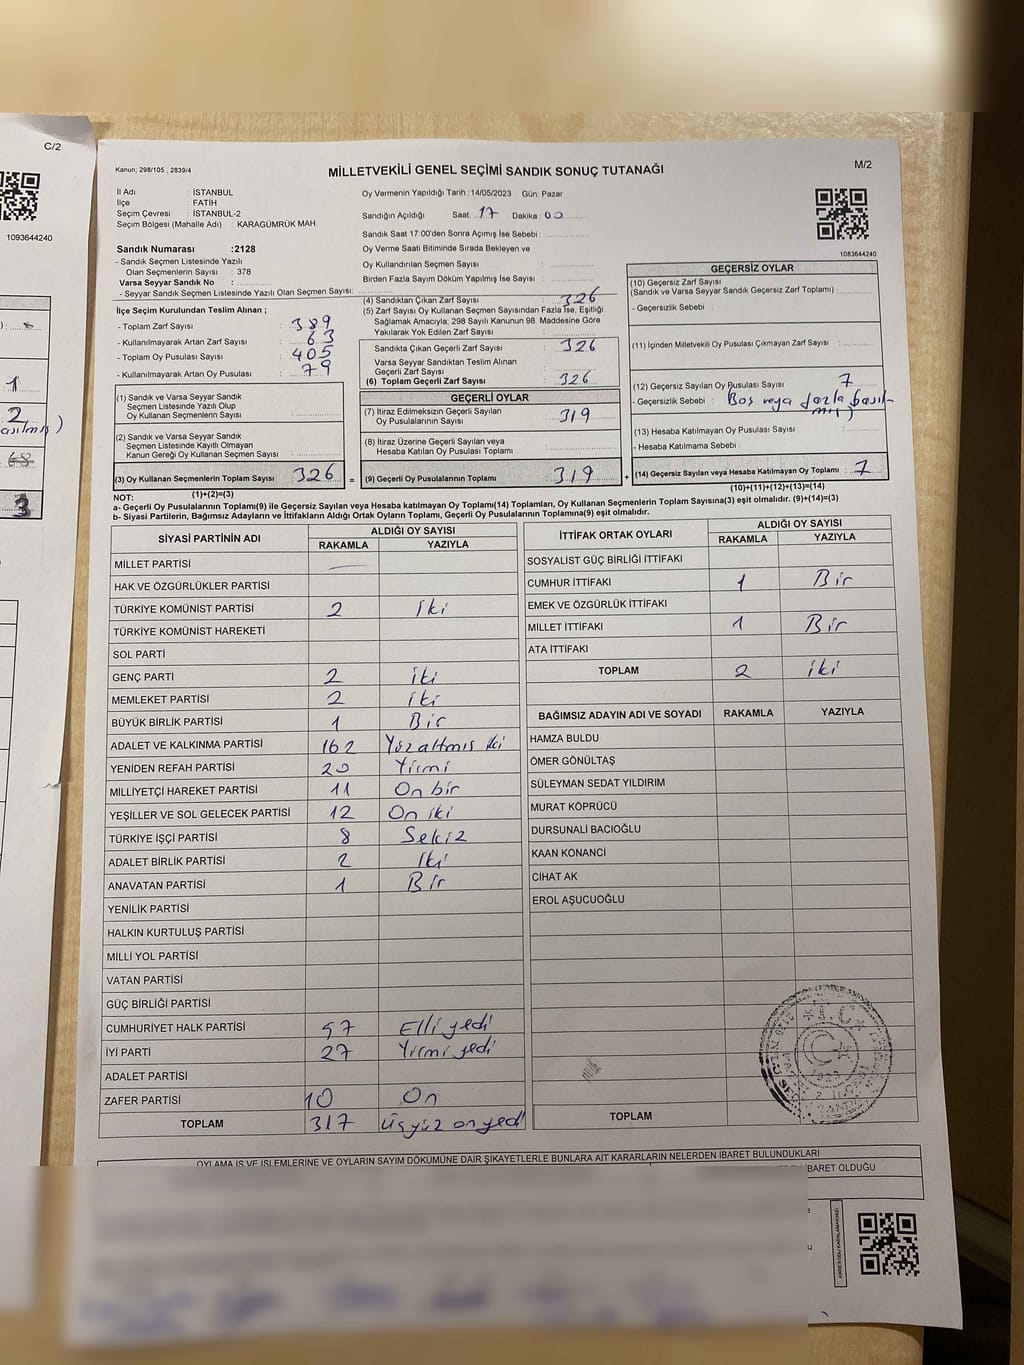 C/2
1093644240
1
2
3
Kanun; 298/105 , 2839/4
MİLLETVEKİLİ GENEL SEÇİMİ SANDIK SONUÇ TUTANAĞI
M/2
İl Adı : İSTANBUL
İlçe : FATİH
Seçim Çevresi : İSTANBUL-2
Seçim Bölgesi (Mahalle Adı) : KARAGÜMRÜK MAH.
Sandık Numarası :2128
- Sandık Seçmen Listesinde Yazılı
Olan Seçmenlerin Sayısı : 378
Varsa Seyyar Sandık No :
- Seyyar Sandık Seçmen Listesinde Yazılı Olan Seçmen Sayısı:
Oy Vermenin Yapıldığı Tarih :14/05/2023 Gün: Pazar
Sandığın Açıldığı Saat: 17 Dakika: 00
Sandık Saat 17:00'den Sonra Açımış İse Sebebi :
Oy Verme Saati Bitiminde Sırada Bekleyen ve
Oy Kullandırılan Seçmen Sayısı :
Birden Fazla Sayım Döküm Yapılmış İse Sayısı :
1083644240
İlçe Seçim Kurulundan Teslim Alınan ;
- Toplam Zarf Sayısı : 389
- Kullanılmayarak Artan Zarf Sayısı : 63
- Toplam Oy Pusulası Sayısı : 405
- Kullanılmayarak Artan Oy Pusulası : 79
(1) Sandık ve Varsa Seyyar Sandık
Seçmen Listesinde Yazılı Olup
Oy Kullanan Seçmenlerin Sayısı :
(2) Sandık ve Varsa Seyyar Sandık
Seçmen Listesinde Kayıtlı Olmayan
Kanun Gereği Oy Kullanan Seçmen Sayısı :
(3) Oy Kullanan Seçmenlerin Toplam Sayısı 326
(1)+(2)=(3)
(4) Sandıktan Çıkan Zarf Sayısı : 326
(5) Zarf Sayısı Oy Kullanan Seçmen Sayısından Fazla İse, Eşitliği
Sağlamak Amacıyla; 298 Sayılı Kanunun 98. Maddesine Göre
Yakılarak Yok Edilen Zarf Sayısı :
Sandıkta Çıkan Geçerli Zarf Sayısı : 326
Varsa Seyyar Sandıktan Teslim Alınan
Geçerli Zarf Sayısı :
(6) Toplam Geçerli Zarf Sayısı : 326
GEÇERLİ OYLAR
(7) İtiraz Edilmeksizin Geçerli Sayılan
Oy Pusulalarının Sayısı : 319
(8) İtiraz Üzerine Geçerli Sayılan veya
Hesaba Katılan Oy Pusulası Toplamı :
= (9) Geçerli Oy Pusulalarının Toplamı : 319 +
GEÇERSİZ OYLAR
(10) Geçersiz Zarf Sayısı
(Sandık ve Varsa Seyyar Sandık Geçersiz Zarf Toplamı) :
- Geçersizlik Sebebi :
(11) İçinden Milletvekili Oy Pusulası Çıkmayan Zarf Sayısı :
(12) Geçersiz Sayılan Oy Pusulası Sayısı : 7
- Geçersizlik Sebebi : Boş veya fazla basıl-
mış)
(13) Hesaba Katılmayan Oy Pusulası Sayısı :
- Hesaba Katılmama Sebebi :
(14) Geçersiz Sayılan veya Hesaba Katılmayan Oy Toplamı : 7
(10)+(11)+(12)+(13)=(14)
NOT:
a- Geçerli Oy Pusulalarının Toplamı(9) ile Geçersiz Sayılan veya Hesaba katılmayan Oy Toplamı(14) Toplamları, Oy Kullanan Seçmenlerin Toplam Sayısına(3) eşit olmalıdır. (9)+(14)=(3)
b- Siyasi Partilerin, Bağımsız Adayların ve İttifakların Aldığı Ortak Oyların Toplamı, Geçerli Oy Pusulalarının Toplamına(9) eşit olmalıdır.
SİYASİ PARTİNİN ADI ALDIĞI OY SAYISI
RAKAMLA YAZIYLA
MİLLET PARTİSİ
HAK VE ÖZGÜRLÜKLER PARTİSİ
TÜRKİYE KOMÜNİST PARTİSİ 2 İki
TÜRKİYE KOMÜNİST HAREKETİ
SOL PARTİ
GENÇ PARTİ 2 iki
MEMLEKET PARTİSİ 2 iki
BÜYÜK BİRLİK PARTİSİ 1 Bir
ADALET VE KALKINMA PARTİSİ 162 Yüzaltmış iki
YENİDEN REFAH PARTİSİ 20 Yirmi
MİLLİYETÇİ HAREKET PARTİSİ 11 On bir
YEŞİLLER VE SOL GELECEK PARTİSİ 12 On iki
TÜRKİYE İŞÇİ PARTİSİ 8 Sekiz
ADALET BİRLİK PARTİSİ 2 İki
ANAVATAN PARTİSİ 1 Bir
YENİLİK PARTİSİ
HALKIN KURTULUŞ PARTİSİ
MİLLİ YOL PARTİSİ
VATAN PARTİSİ
GÜÇ BİRLİĞİ PARTİSİ
CUMHURİYET HALK PARTİSİ 57 Elli yedi
İYİ PARTİ 27 Yirmi yedi
ADALET PARTİSİ
ZAFER PARTİSİ 10 On
TOPLAM 317 Üçyüz onyedi
İTTİFAK ORTAK OYLARI ALDIĞI OY SAYISI
RAKAMLA YAZIYLA
SOSYALİST GÜÇ BİRLİĞİ İTTİFAKI
CUMHUR İTTİFAKI 1 Bir
EMEK VE ÖZGÜRLÜK İTTİFAKI
MİLLET İTTİFAKI 1 Bir
ATA İTTİFAKI
TOPLAM 2 iki
BAĞIMSIZ ADAYIN ADI VE SOYADI RAKAMLA YAZIYLA
HAMZA BULDU
ÖMER GÖNÜLTAŞ
SÜLEYMAN SEDAT YILDIRIM
MURAT KÖPRÜCÜ
DURSUNALİ BACIOĞLU
KAAN KONANCİ
CİHAT AK
EROL AŞUCUOĞLU
TOPLAM
T.C.
2023
OYLAMA İŞ VE İŞLEMLERİNE VE OYLARIN SAYIM DÖKÜMÜNE DAİR ŞİKAYETLERLE BUNLARA AİT KARARLARIN NELERDEN İBARET BULUNDUKLARI
İBARET OLDUĞU